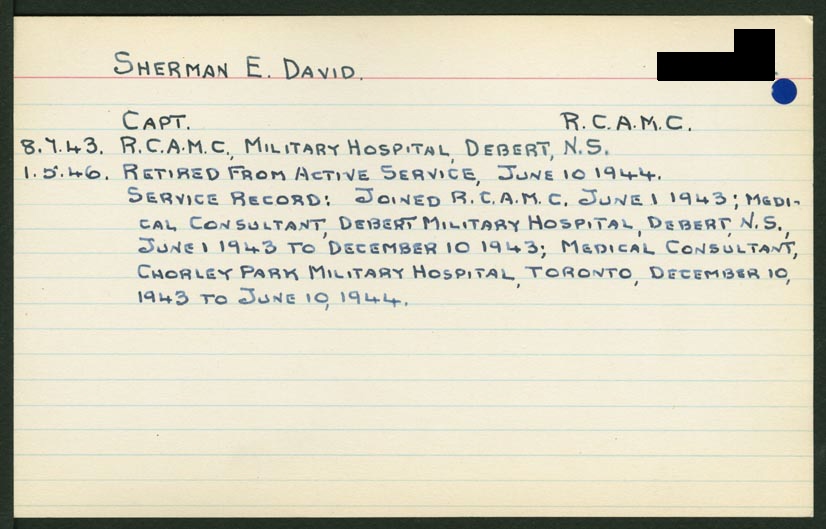 SHERMAN E. DAVID.
CAPT. R.C.A.M.C.
8.7.43. R.C.A.M.C., MILITARY HOSPITAL, DEBERT, N.S.
1.5.46. RETIRED FROM ACTIVE SERVICE, JUNE 10 1944.
SERVICE RECORD: JOINED R.C.A.M.C. JUNE 1 1943; MEDI-
CAL CONSULTANT, DEBERT MILITARY HOSPITAL, DEBERT, N.S.,
JUNE 1 1943 TO DECEMBER 10 1943; MEDICAL CONSULTANT,
CHORLEY PARK MILITARY HOSPITAL, TORONTO, DECEMBER 10,
1943 TO JUNE 10, 1944.